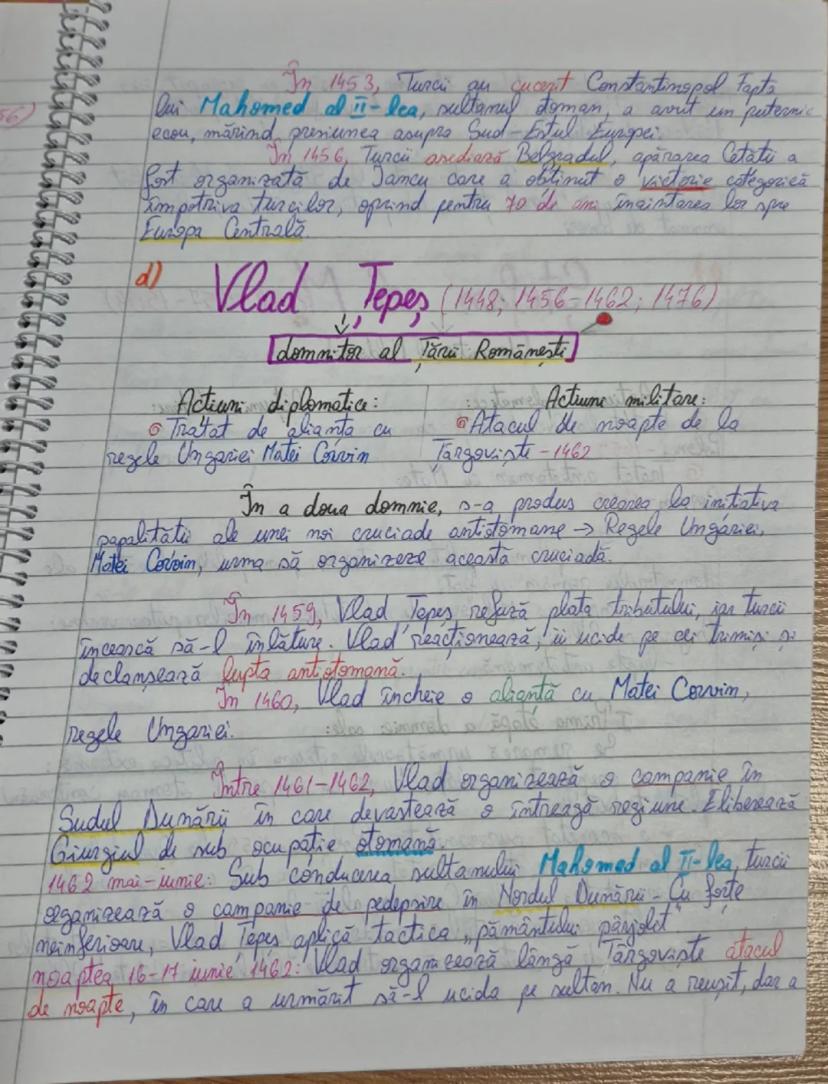 56)
În 1453, Turcii au cucerit Constantinopol Fapta
lui Mahomed al II-lea, sultanul otoman, a avut un puternic
ecou, mărind, presiunea asupra Sud-Estul Europei.
În 1456, Turcii asediază Belgradul, apărarea Cetății a
fost organizată de Iancu care a obținut o victorie categorică
împotriva turcilor, oprind pentru 70 de ani înaintarea lor spre
Europa Centrală.
d) Vlad Țepeș (1448; 1456-1462; 1476)
domnitor al Țării Românești
Acțiuni diplomatice:
Tratat de alianța cu
regele Ungariei Matei Corvin
Acțiune militare:
Atacul de noapte de la
Târgoviște - 1462
În a doua domnie, s-a produs crearea la inițiativa
papalității ale unei noi cruciade antiotomane → Regele Ungariei,
Matei Corvin, urma să organizeze această cruciadă.
În 1459, Vlad Țepeș refuză plata tributului, iar turcii
încească să-l înlăture. Vlad reacționează, îi ucide pe cei trimiși și
declanșează lupta antiotomană.
În 1460, Vlad încheie o alianță cu Matei Corvin,
regele Ungariei.
Între 1461-1462, Vlad organizează o campanie în
Sudul Dunării în care devastează o întreagă regiune. Eliberează
Giurgiul de sub ocupație otomană
1462 mai-iunie: Sub conducerea sultanului Mahomed al II-lea, turcii
organizează o campanie de pedepsire în Nordul Dunării - Cu forțe
neinferioare, Vlad Țepeș aplică tactica „pământului pârjolit"
noaptea 16-17 iunie 1462: Vlad organizează lângă Târgoviște atacul
de noapte, în care a urmărit să-l ucidă pe sultan. Nu a reușit, dar a